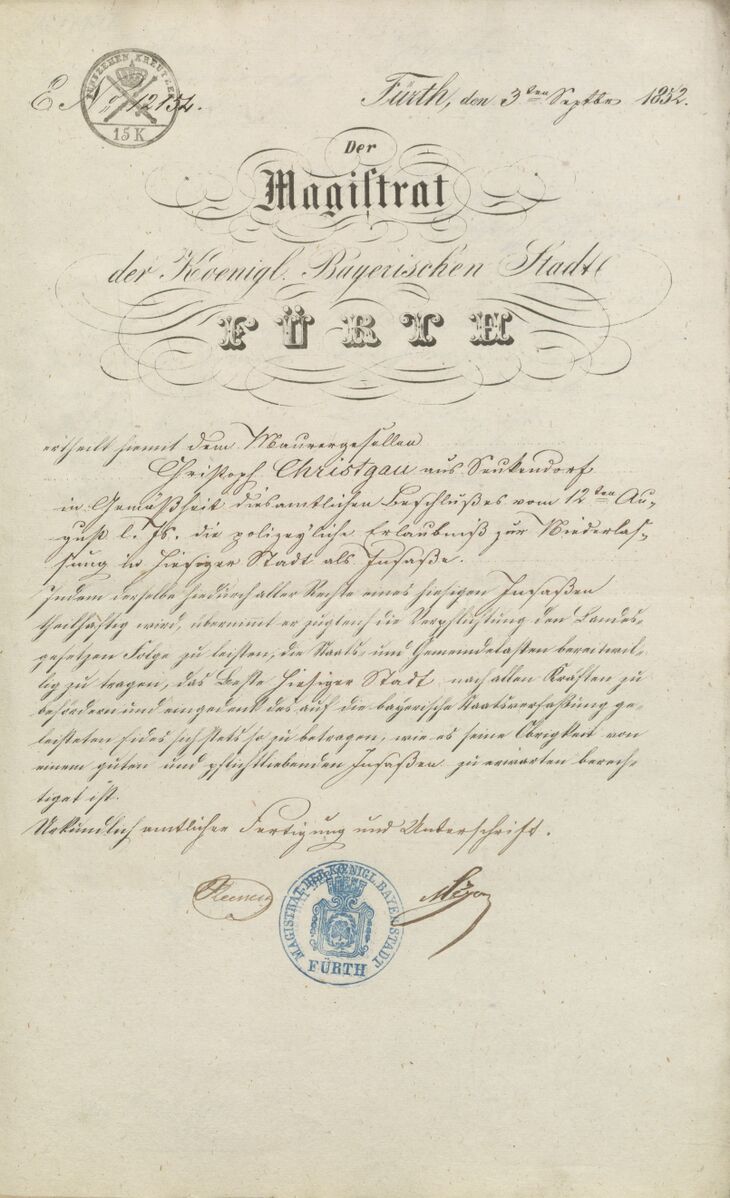 FÜNFZEHEN KREUTZER
15 K
E. No. 12154.
Fürth, den 3ten Septbr 1852.
Der
Magiſtrat
der Koenigl. Bayerischen Stadt
FÜRTH
ertheilt hiemit dem Maurergesellen
Christoph Christgau aus Seukendorf
in Gemäßheit diesamtlichen Beschlußes vom 12ten Au-
gust l. Js. die polizeyliche Erlaubniß zur Niederlas-
sung in hiesiger Stadt als Insaße.
Indem derselbe hiedurch aller Rechte eines hiesigen Insaßen
theilhaftig wird, übernimt er zugleich die Verpflichtung den Landes-
gesetzen Folge zu leisten, die Staats- und Gemeindelasten bereitwil-
lig zu tragen, das Beste hiesiger Stadt nach allen Kräften zu
befördern und eingedenk des auf die bayerische Staatsverfaßung ge-
leisteten Eides sich stets so zu betragen, wie es seine Obrigkeit von
einem guten und pflichtliebenden Insaßen zu erwarten berech-
tiget ist.
Urkundlich amtlicher Fertigung und Unterschrift.
MAGISTRAT DER KOENIGL. BAYER. STADT
FÜRTH